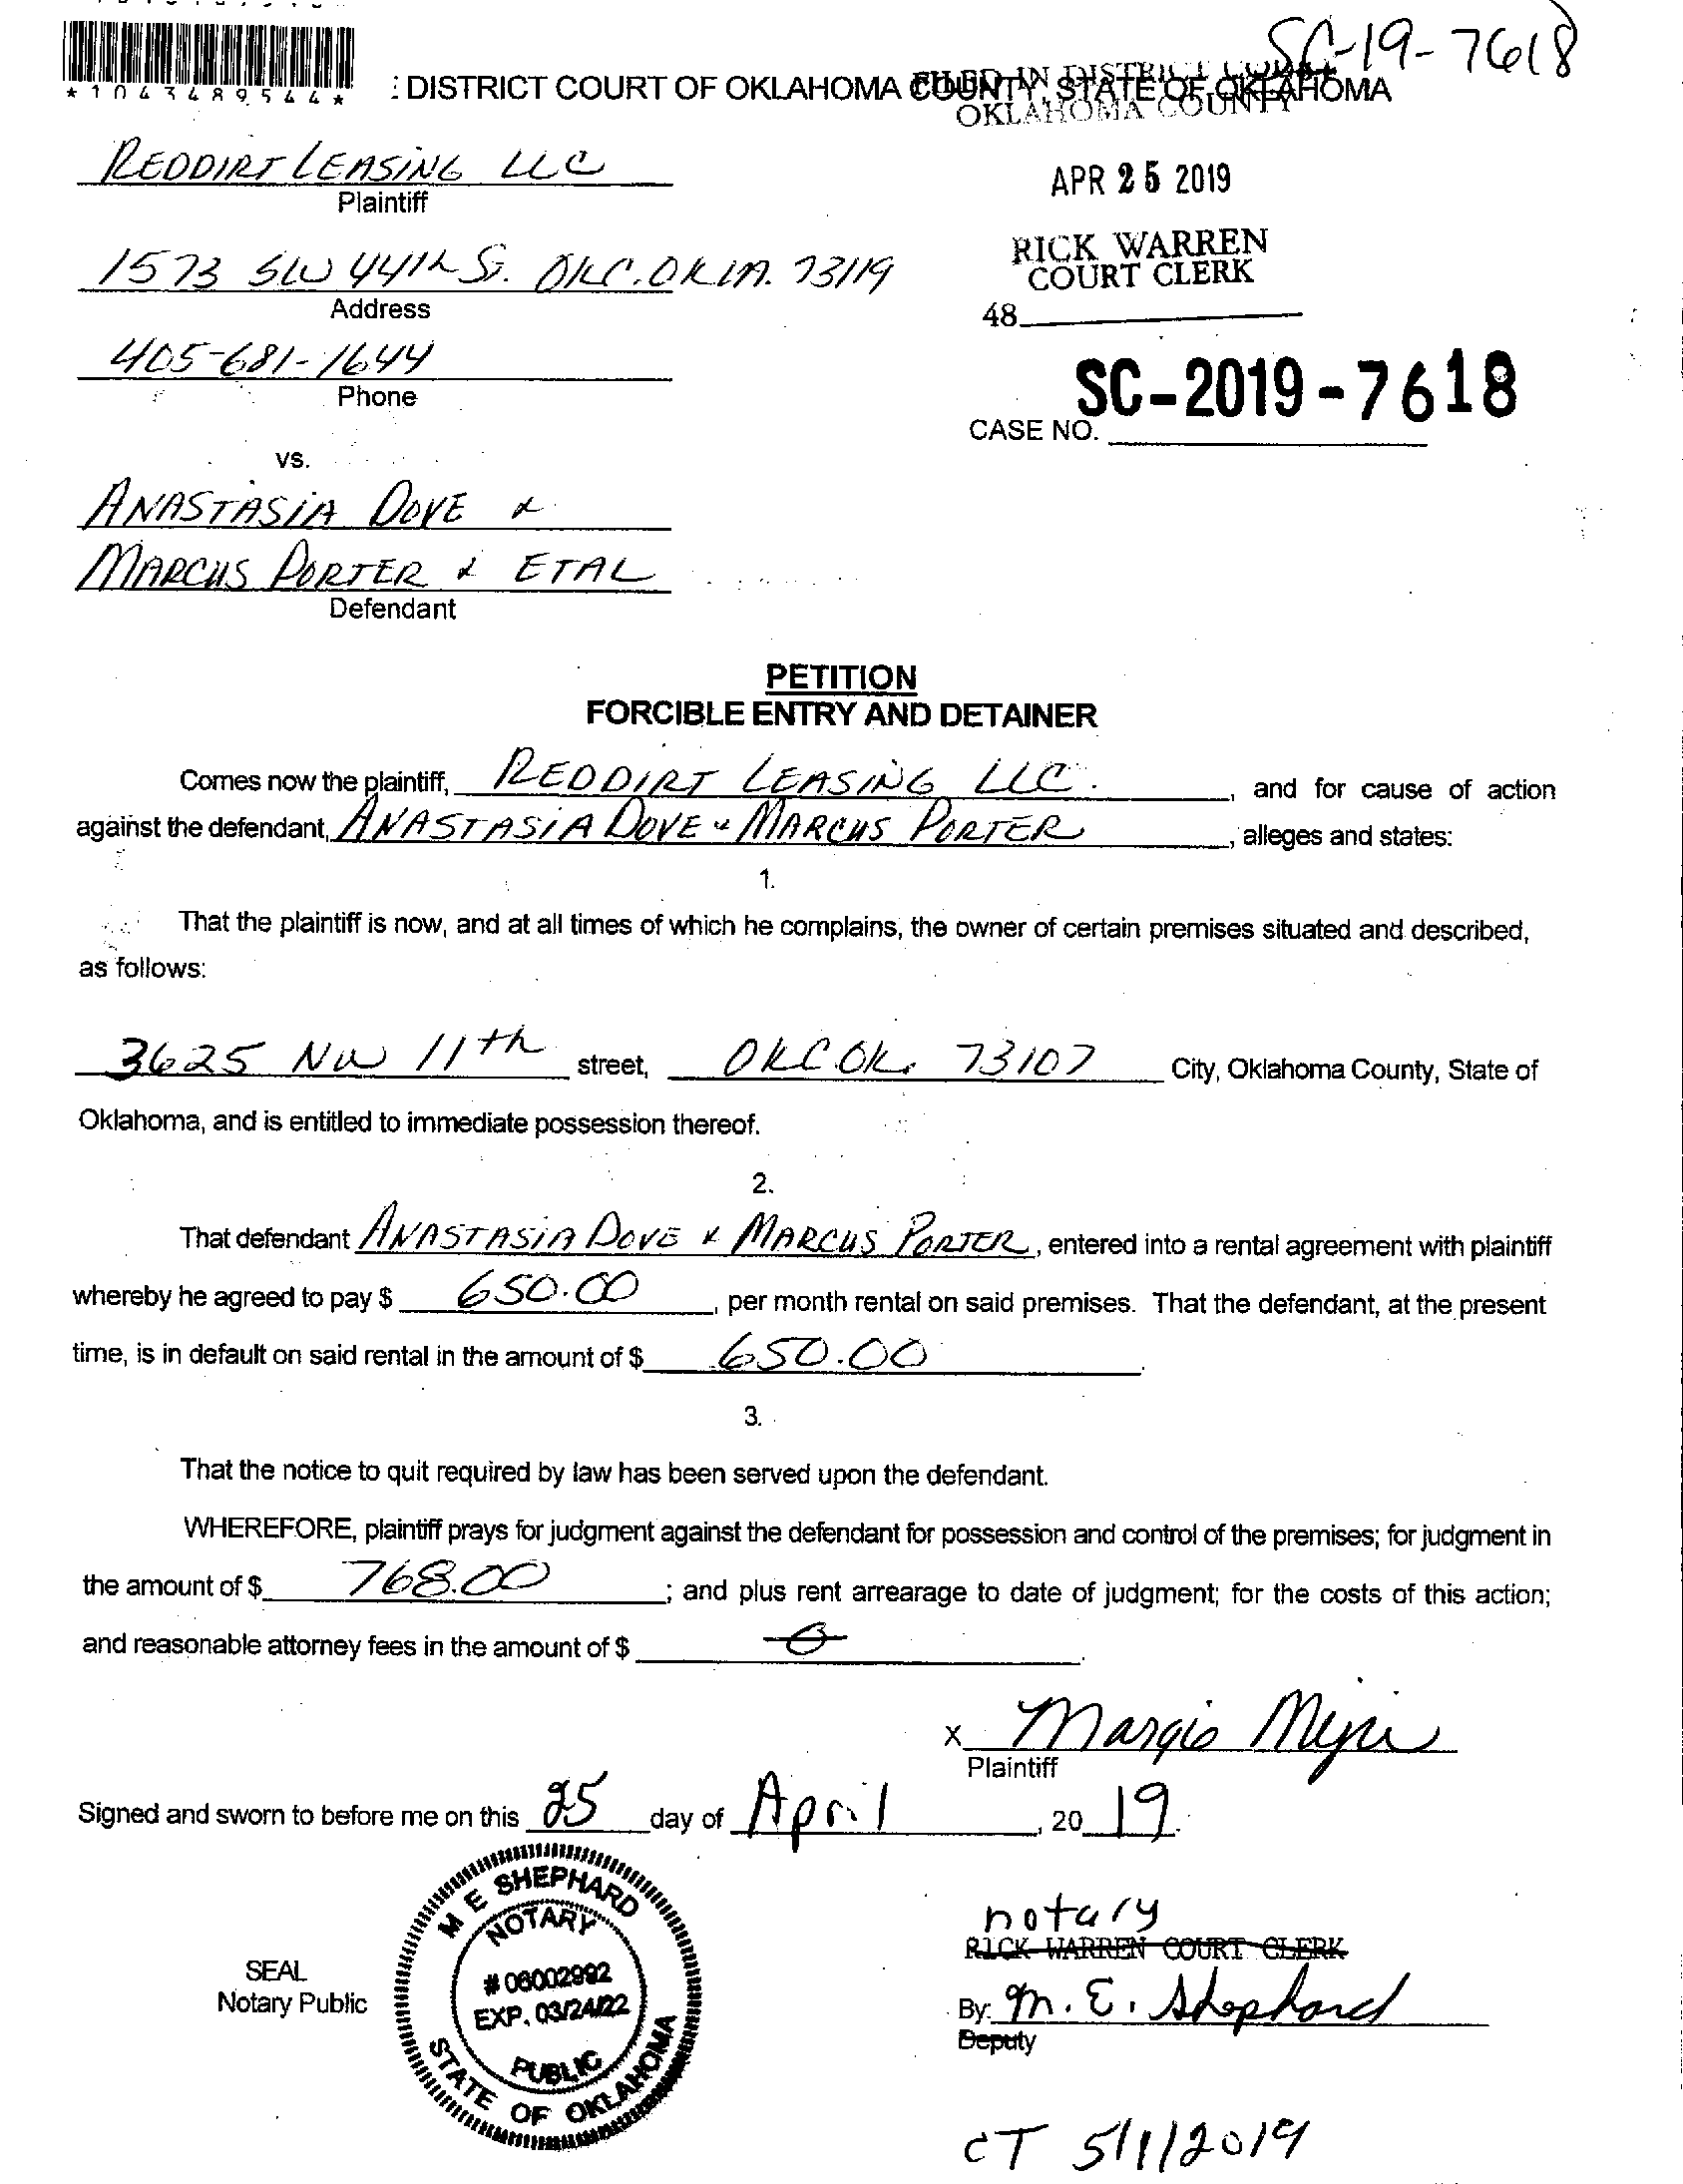 SC-19-7618
*1043489544*
DISTRICT COURT OF OKLAHOMA COUNTY, STATE OF OKLAHOMA
FILED IN DISTRICT COURT
OKLAHOMA COUNTY
REDDIRT LEASING LLC
Plaintiff
APR 25 2019
1573 SW 44th St. OKC. OKLA. 73119
Address
RICK WARREN
COURT CLERK
48
405-681-1644
Phone
SC-2019-7618
CASE NO.
vs.
ANASTASIA DOVE &
MARCUS PORTER & ETAL
Defendant
PETITION
FORCIBLE ENTRY AND DETAINER
Comes now the plaintiff, REDDIRT LEASING LLC. , and for cause of action
against the defendant, ANASTASIA DOVE & MARCUS PORTER , alleges and states:
1.
That the plaintiff is now, and at all times of which he complains, the owner of certain premises situated and described,
as follows:
3625 NW 11th street, OKC OK. 73107 City, Oklahoma County, State of
Oklahoma, and is entitled to immediate possession thereof.
2.
That defendant ANASTASIA DOVE & MARCUS PORTER, entered into a rental agreement with plaintiff
whereby he agreed to pay $ 650.00 , per month rental on said premises. That the defendant, at the present
time, is in default on said rental in the amount of $ 650.00 .
3.
That the notice to quit required by law has been served upon the defendant.
WHEREFORE, plaintiff prays for judgment against the defendant for possession and control of the premises; for judgment in
the amount of $ 768.00 ; and plus rent arrearage to date of judgment; for the costs of this action;
and reasonable attorney fees in the amount of $ 0 .
X Margie
Plaintiff
Signed and sworn to before me on this 25 day of April , 20 19.
notary
RICK WARREN COURT CLERK
By: M. E. Shephard
Deputy
SEAL
Notary Public
M E SHEPHARD
NOTARY
# 06002992
EXP. 03/24/22
PUBLIC
STATE OF OKLAHOMA
CT 5/1/2019